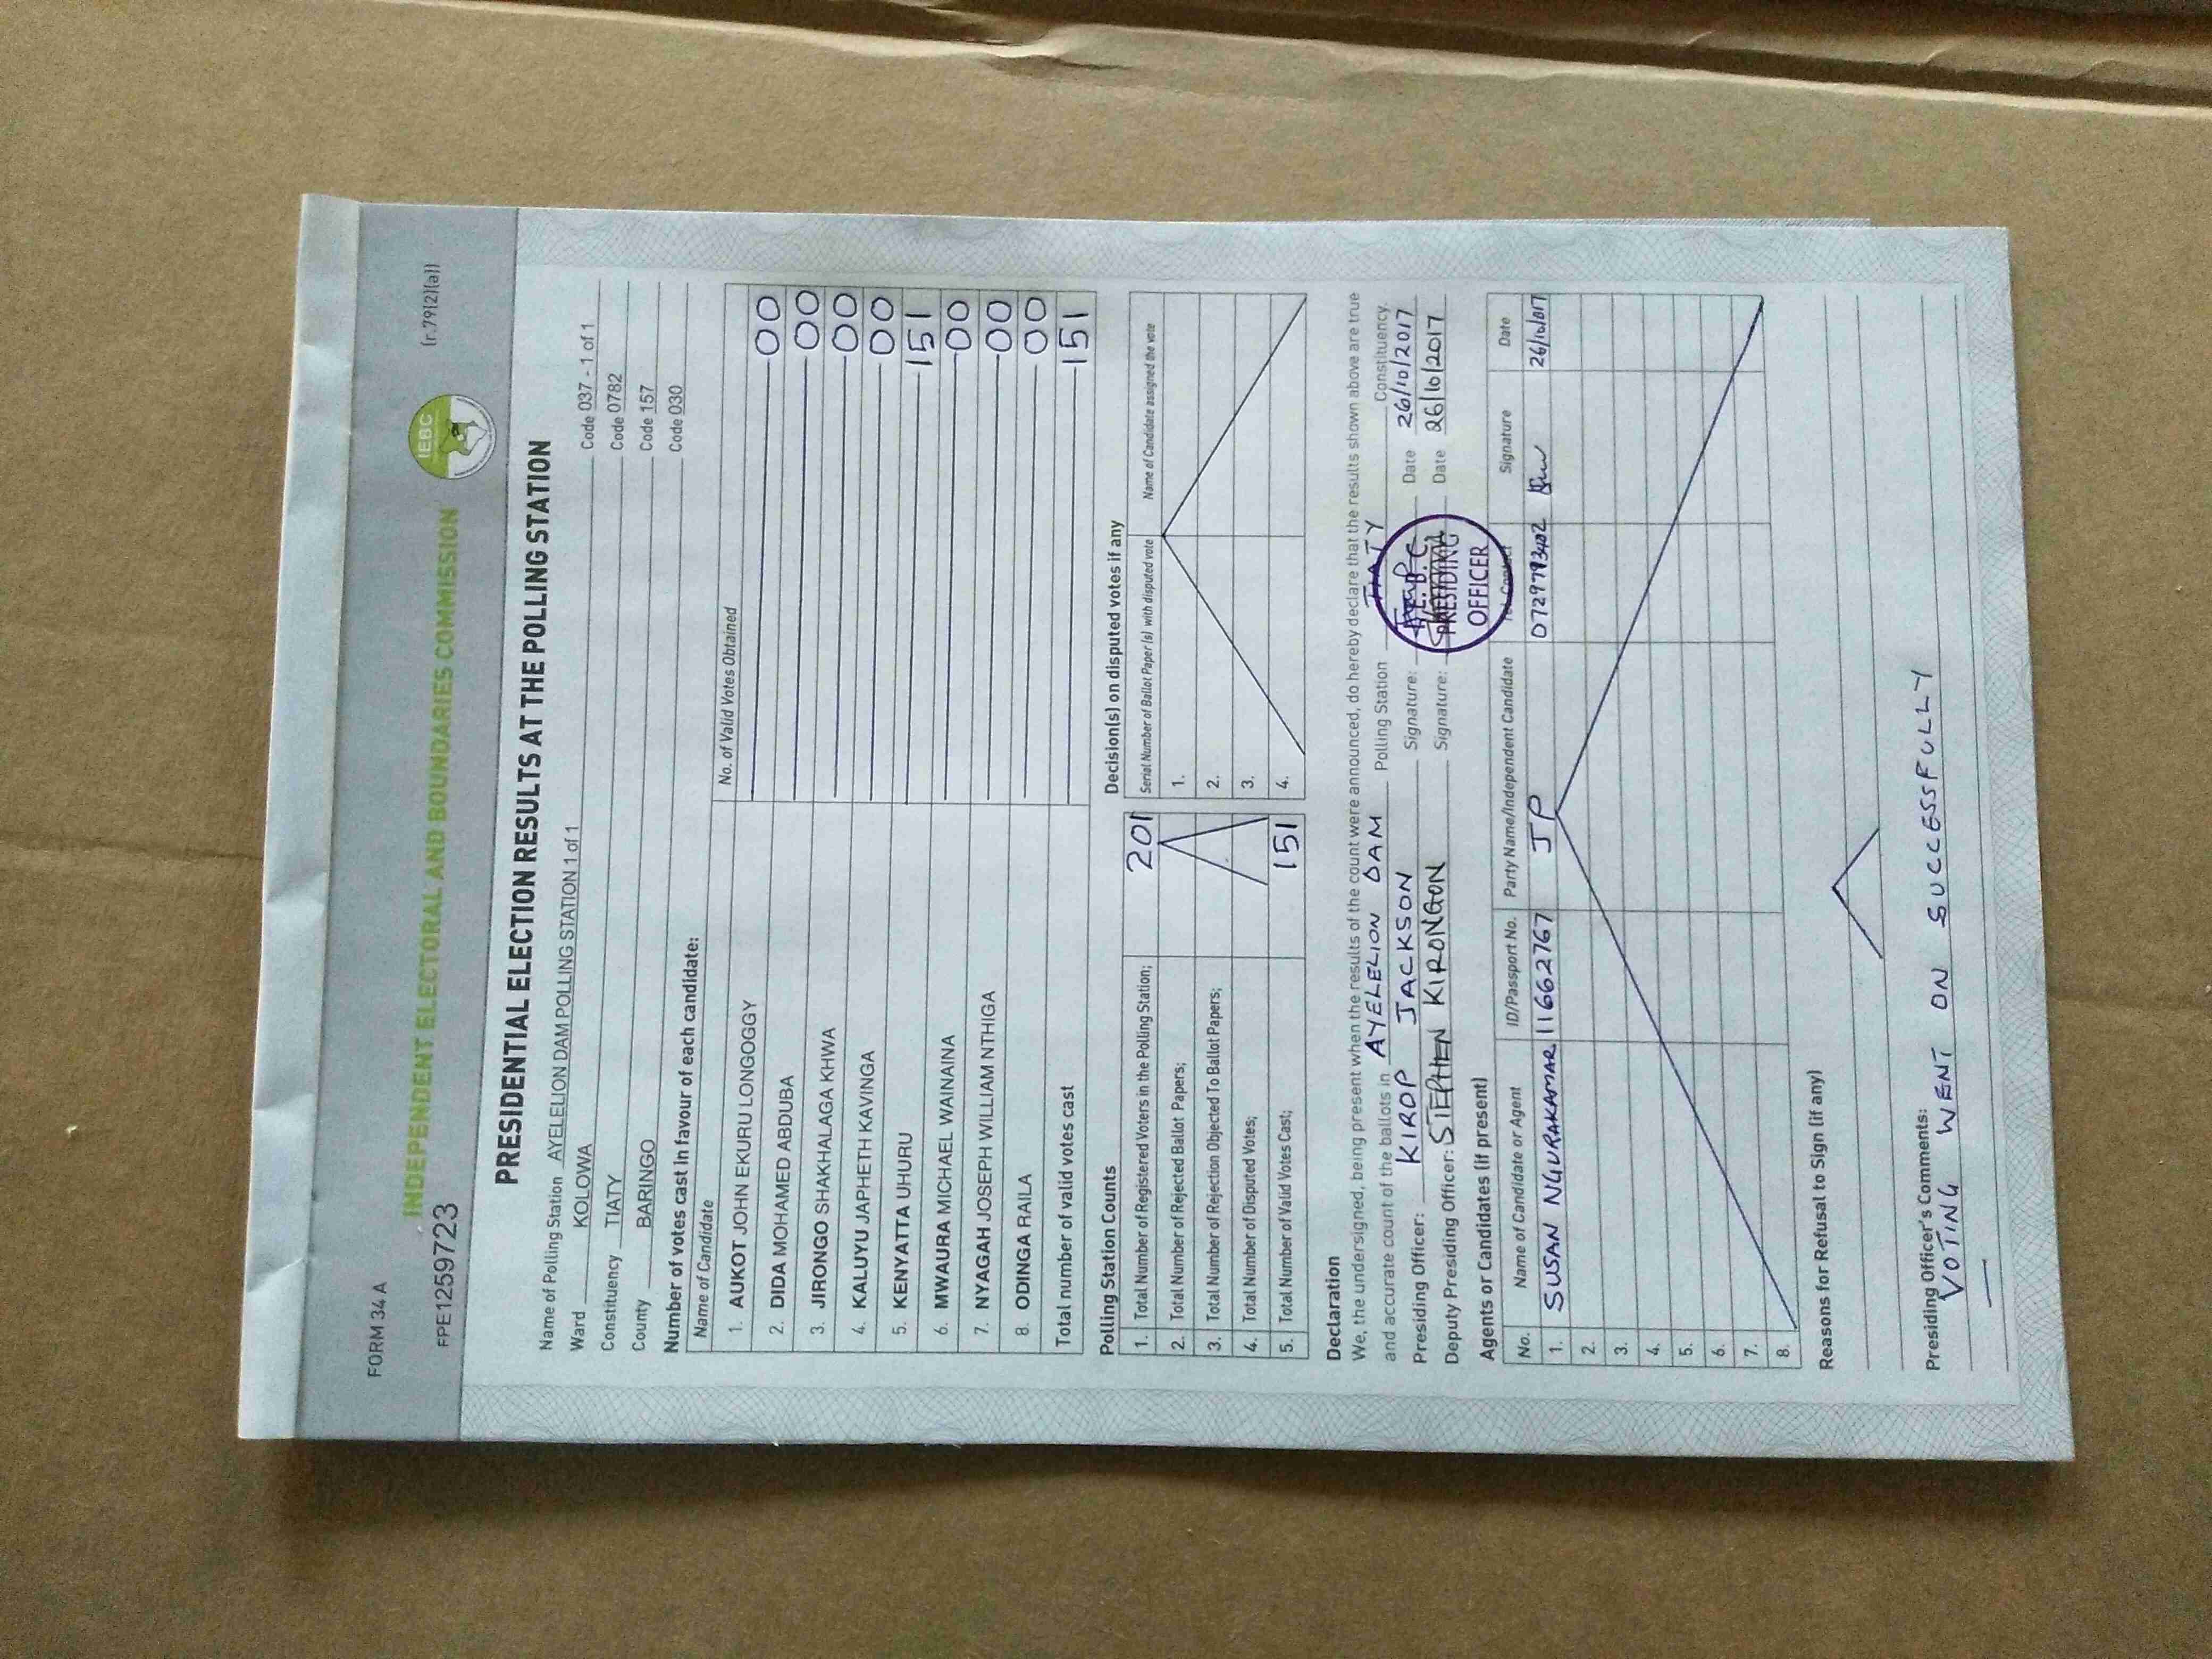 FORM 34 A
(r.79(2)(a))
INDEPENDENT ELECTORAL AND BOUNDARIES COMMISSION
IEBC
FPE1259723
PRESIDENTIAL ELECTION RESULTS AT THE POLLING STATION
Name of Polling Station AYELELION DAM POLLING STATION 1 of 1 Code 037 - 1 of 1
Ward KOLOWA Code 0782
Constituency TIATY Code 157
County BARINGO Code 030
Number of votes cast in favour of each candidate:
Name of Candidate No. of Valid Votes Obtained
1. AUKOT JOHN EKURU LONGOGGY 00
2. DIDA MOHAMED ABDUBA 00
3. JIRONGO SHAKHALAGA KHWA 00
4. KALUYU JAPHETH KAVINGA 00
5. KENYATTA UHURU 151
6. MWAURA MICHAEL WAINAINA 00
7. NYAGAH JOSEPH WILLIAM NTHIGA 00
8. ODINGA RAILA 00
Total number of valid votes cast 151
Polling Station Counts
1. Total Number of Registered Voters in the Polling Station; 201
2. Total Number of Rejected Ballot Papers;
3. Total Number of Rejection Objected To Ballot Papers;
4. Total Number of Disputed Votes;
5. Total Number of Valid Votes Cast; 151
Decision(s) on disputed votes if any
Serial Number of Ballot Paper (s) with disputed vote Name of Candidate assigned the vote
1.
2.
3.
4.
Declaration
We, the undersigned, being present when the results of the count were announced, do hereby declare that the results shown above are true
and accurate count of the ballots in AYELELION DAM Polling Station TIATY Constituency.
Presiding Officer: KIROP JACKSON Signature: Date 26/10/2017
Deputy Presiding Officer: STEPHEN KIRONGON Signature: Date 26/10/2017
I.E.B.C
PRESIDING
OFFICER
Agents or Candidates (if present)
No. Name of Candidate or Agent ID/Passport No. Party Name/Independent Candidate Tel. Contact Signature Date
1. SUSAN NGURAKAMAR 11662767 JP 0729793402 26/10/017
2.
3.
4.
5.
6.
7.
8.
Reasons for Refusal to Sign (if any)
Presiding Officer's Comments:
VOTING WENT ON SUCCESSFULLY